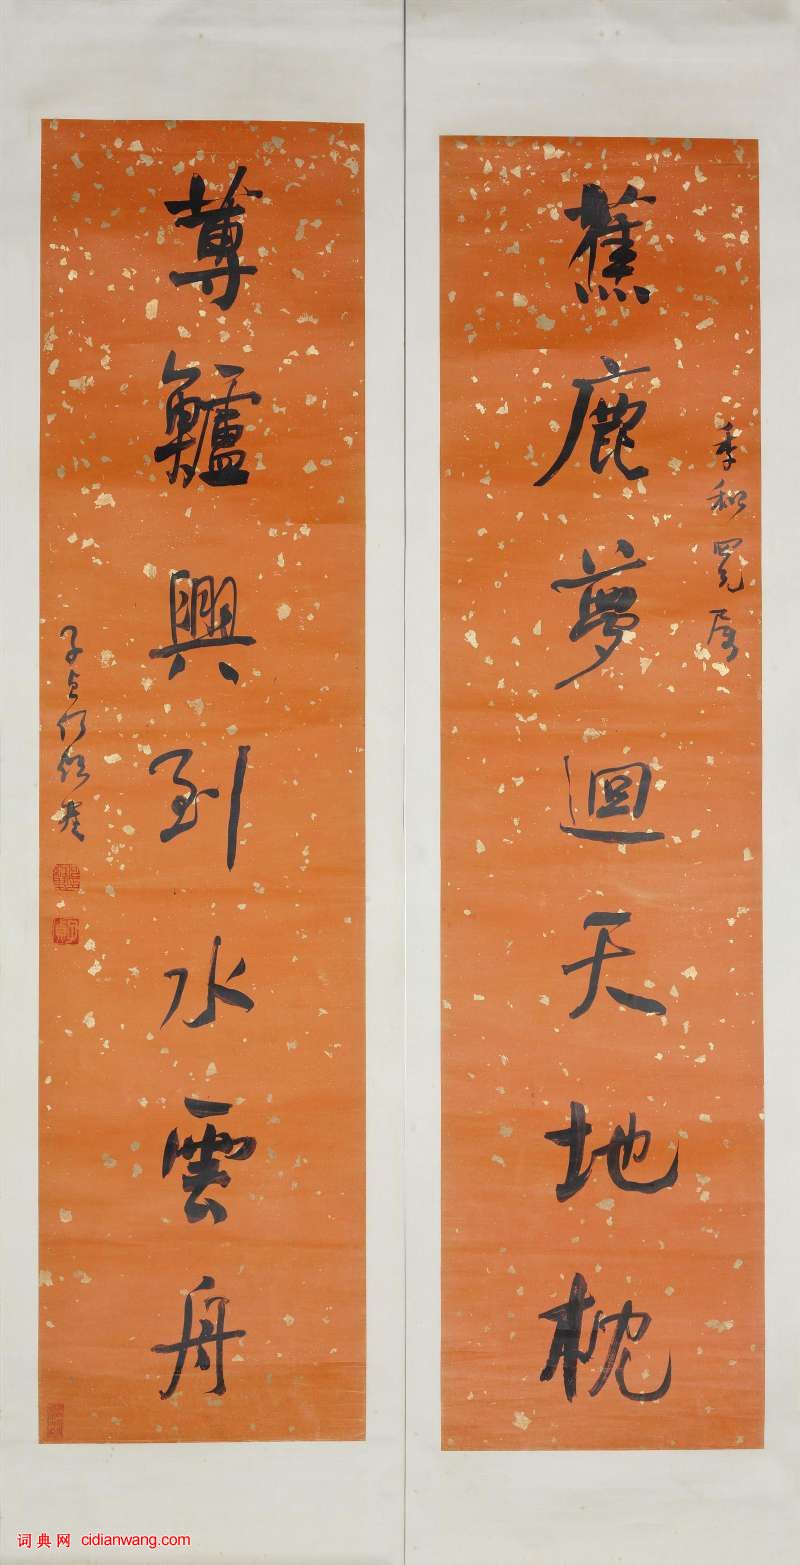 季和罣屬
蕉鹿夢迴天地枕
蓴鱸興到水雲舟
子貞何紹基
词典网 cidianwang.com